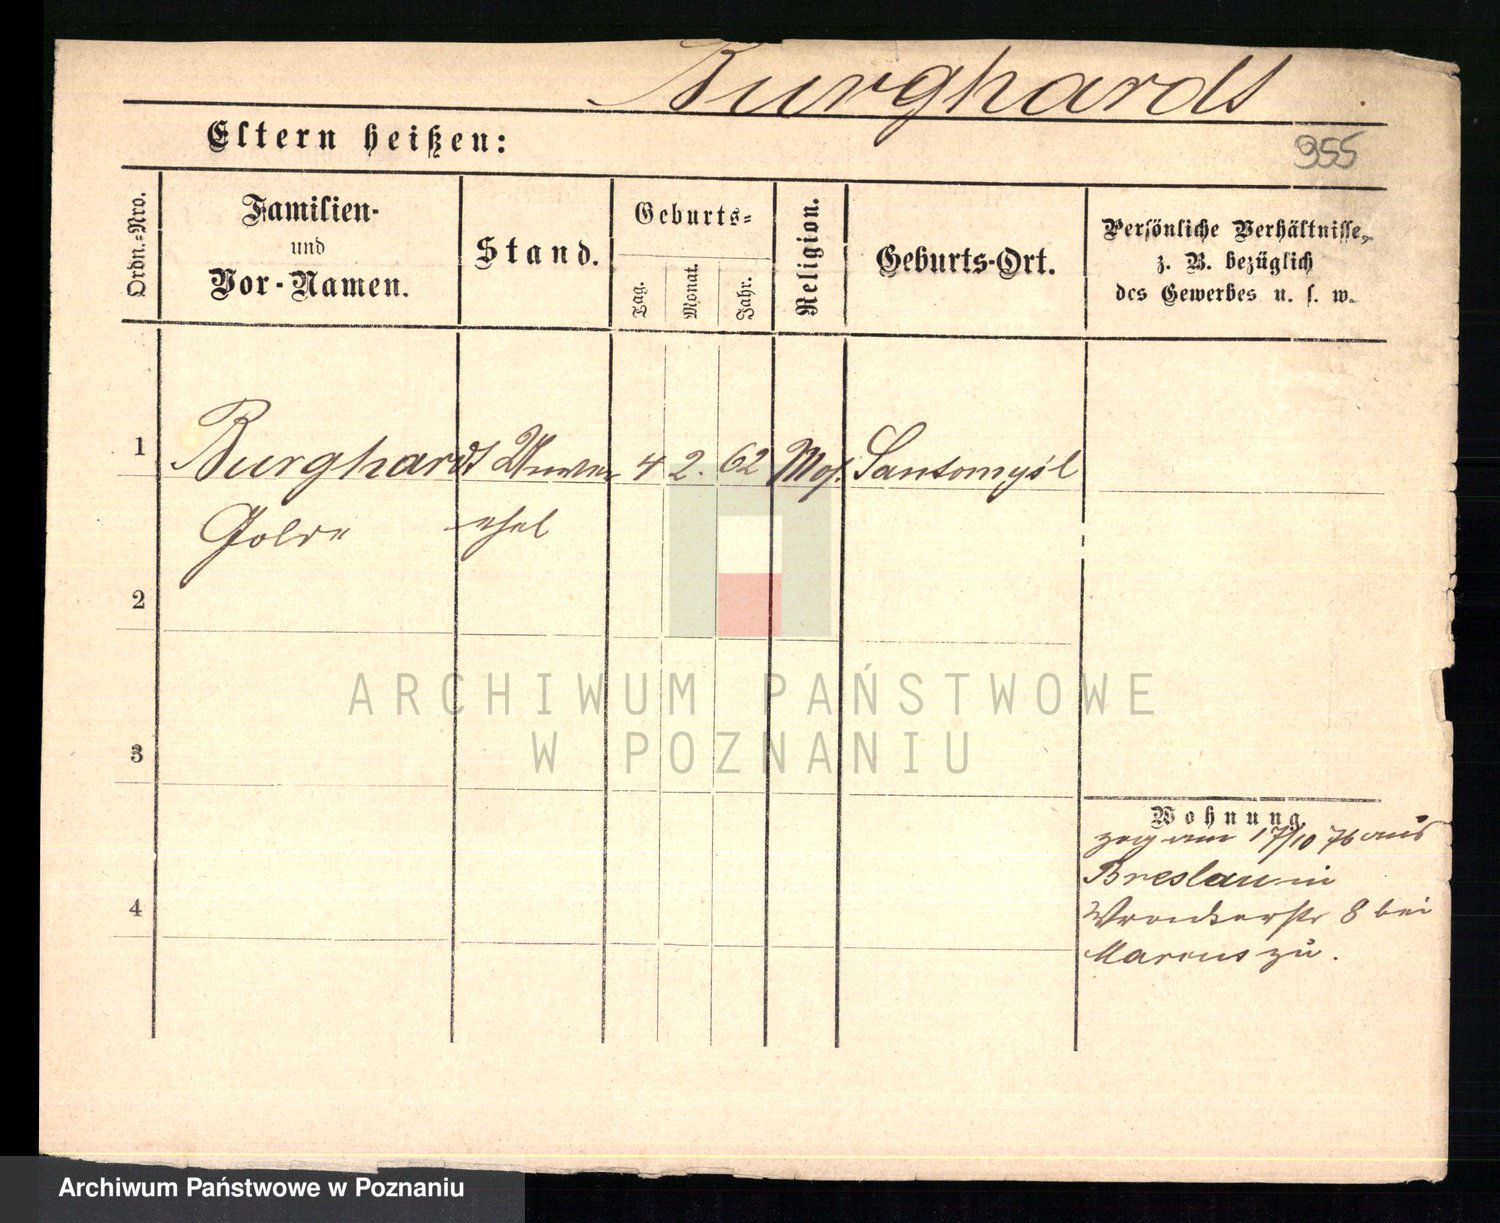 Burghardt
Eltern heißen:
955
Ordn.-Nro.
Familien-
und
Vor-Namen.
Stand.
Geburts-
Tag.
Monat.
Jahr.
Religion.
Geburts-Ort.
Persönliche Verhältnisse,
z. B. bezüglich
des Gewerbes u. s. w.
1 Burghardt Unver 4 2. 62 Mos. Santomyśl
Golde ehel
2
3
4
ARCHIWUM PAŃSTWOWE
W POZNANIU
Wohnung.
zog am 17/10 76 aus
Breslau in
Wronkerstr 8 bei
Marcus zu.
Archiwum Państwowe w Poznaniu